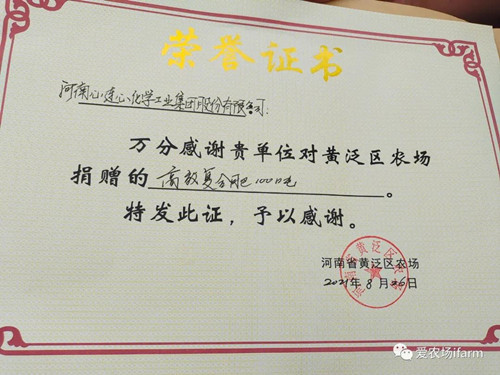 荣誉证书
河南心连心化学工业集团股份有限公司：
万分感谢贵单位对黄泛区农场
捐赠的高效复合肥100吨。
特发此证，予以感谢。
河南省黄泛区农场
2021年8月26日
爱农场ifarm